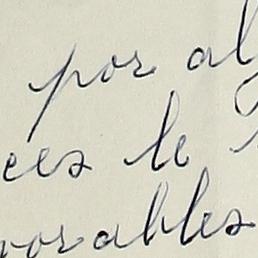 por al
ces le
orables